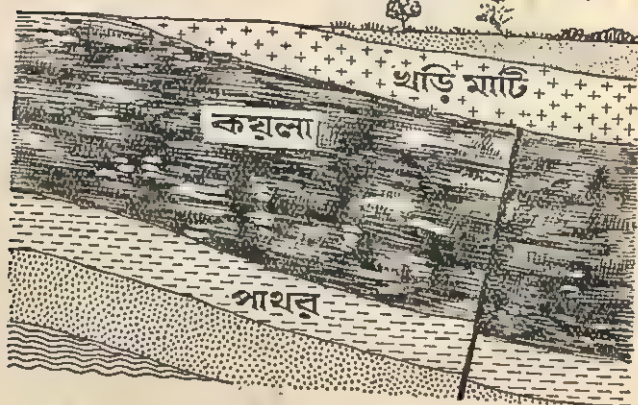 খড়ি মাটি
কয়লা
পাথর